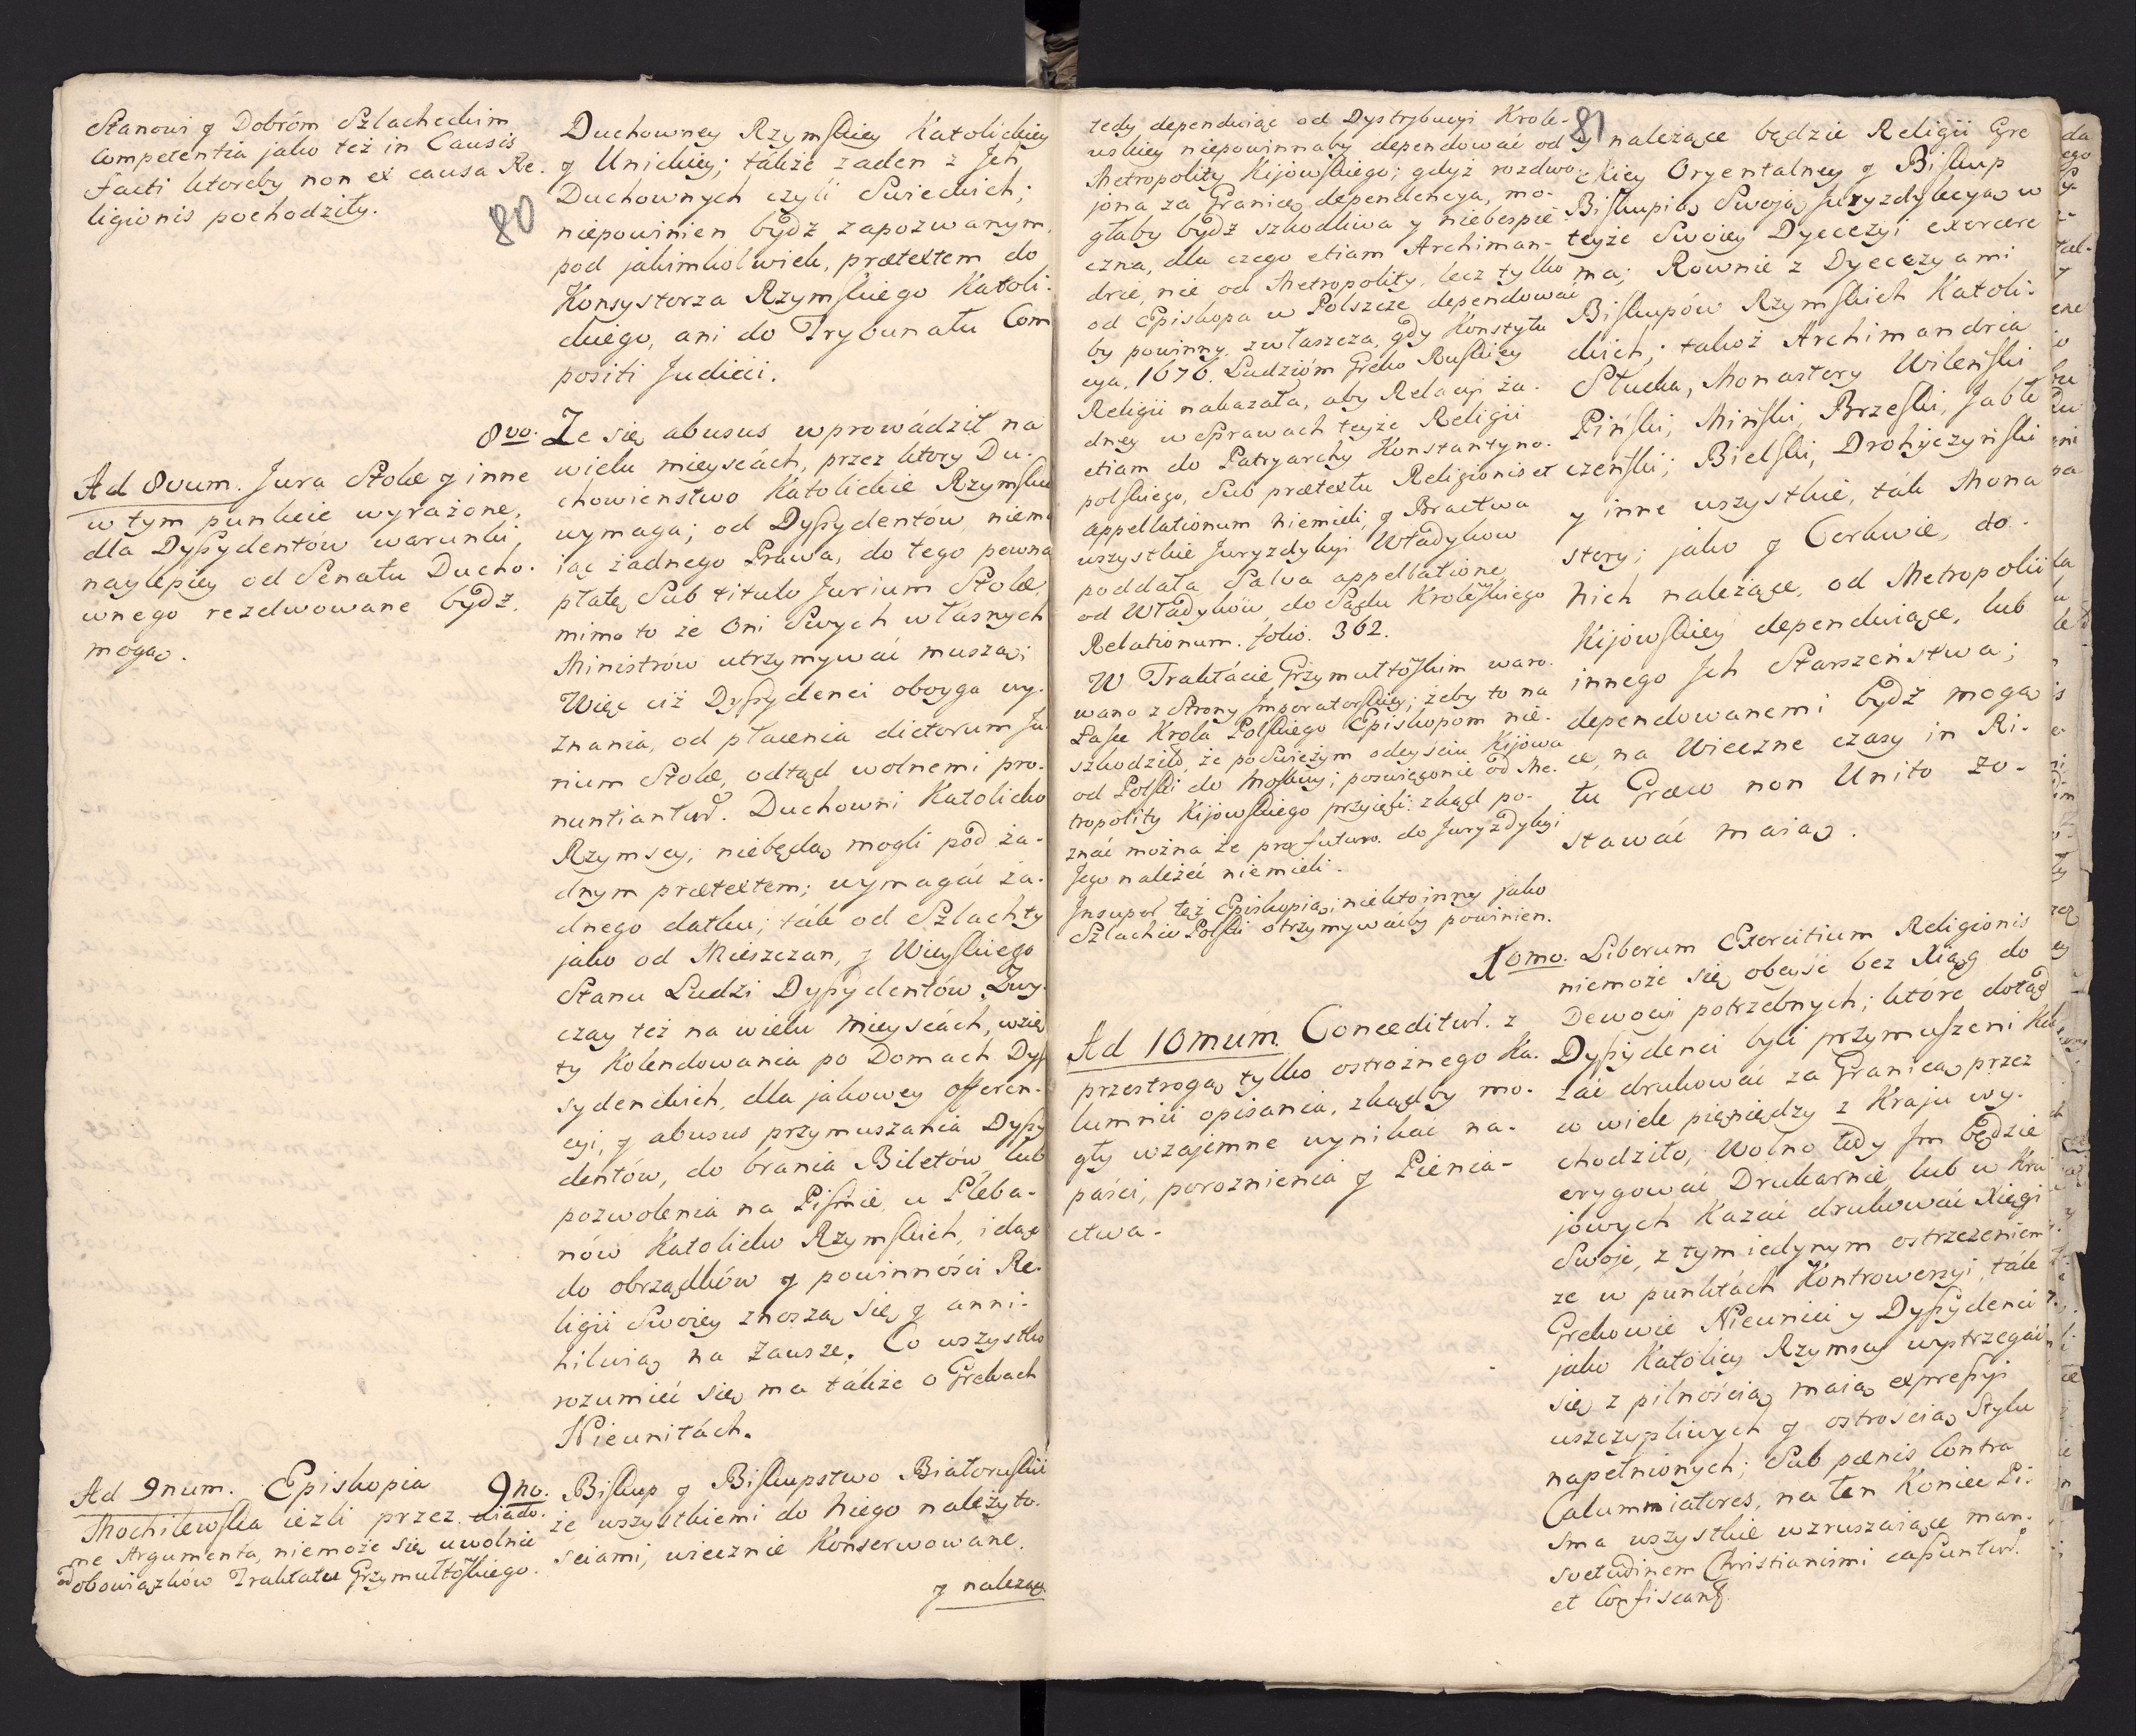 Stanowi y Dobróm Szlacheckim
Competentia jako też in Causis
facti ktoreby non ex causa Re-
ligionis pochodziły.
80
Ad 8vum. Jura Stolæ y inne
w tym punkcie wyrażone,
dla Dyssydentów warunki,
naylepiey od Senatu Ducho-
wnego rezolwowane bydź
mogą.
Ad 9num. Episkopia
Mochilewska ieżli przez wiado-
me Argumenta, niemoże się uwolnić
od obowiązków Traktatu Grzymułtowskiego.
Duchowney Rzymskiey Katolickiey
y Unickiey; tákże żaden z Jch
Duchownych czyli Swieckich;
niepowinien bydź zapozwanym,
pod jakimkolwiek, prætextem do
Konsystorza Rzymskiego Katoli-
ckiego, ani do Trybunału Com
positi Judicii.
8vo. Ze się abusus wprowádził na
wielu mieyscách, przez ktory Du-
chowienstwo Katolickie Rzymskie
wymaga; od Dyssydentów niema
iąc żadnego Prawa, do tego pewną
płatę Sub titulo Jurium Stolæ,
mimo to że Oni Swych własnych
Ministrów utrzymywać muszą;
Więc ciż Dyssydenci oboyga wy-
znania, od płacenia dictorum Ju
rium Stolæ, odtąd wolnemi pro-
nuntiantur. Duchowni Katolicko
Rzymscy; niebędą mogli pod ża-
dnym prætextem; wymagáć ża-
dnego datku; ták od Szlachty
jako od Mieszczan, y Wieyskiego
Stanu Ludzi Dyssydentów. Zwy-
czay też na wielu mieyscách, wzię
ty Kolendowania po Domach Dys
sydenckich, dla jakowey offeren-
cyi, y abusus przymuszania Dyssy
dentów, do brania Biletów lub
pozwolenia na Piśmie, u Pleba-
nów Katolicko Rzymskich, idąc
do obrządków y powinności Re-
ligii Swoiey znoszą się y anni-
hiluią na Zawsze. Co wszystko
rozumieć się ma tákże o Grekach
Nieunitách.
9no. Biskup y Biskupstwo Białoruskie
że wszystkiemi do niego należyto-
sciami, wiecznie Konserwowane.
y należące
tedy dependuiąc od Dystrybucyi Krole-
wskiey niepowinnaby dependować od
Metropolity Kijowskiego; gdyż rozdwo-
jona za Granicę dependencya, mo-
głaby bydź szkodliwa y niebespie-
czna, dla czego etiam Archiman-
drie, nie od Metropolity, lecz tylko
od Episkopa w Polszcze dependować
by powinny, zwłaszcza, gdy Konstytu
cya, 1676. Ludzióm Greko Ruskiey
Religii nakazała, aby Relacyi ża-
dney w Sprawach teyże Religii
etiam do Patryarchy Konstantyno-
polskiego, Sub prætextu Religionis et
appellationum niemieli, y Bractwa
wszystkie Juryzdykcyi Władykow
poddała, Salva appellatione,
od Władyków do Sądu Krolewskiego
Relationum. folio. 362.
W Traktácie Grzymułtowskim waro-
wano z Strony Jmperatorskiey; żeby to na
Łasce Krola Polskiego Episkopom nie-
szkodziło, że po świeżym odeysciu Kijowa
od Polski do Moskwy; poswięcenie od Me-
tropolity Kijowskiego przyięli: zkąd po-
znać można, że pro futuro. do Juryzdykcyi
Jego należeć niemieli.
Jnsuper też Episkopią, niekto inny jako
Szlachcic Polski otrzymywáćby powinien.
Ad 10mum. Conceditur. z
przestrogą tylko ostrożnego Ka-
lumnii opisania, zkądby mo-
gły wzajemne wynikać na-
paści, poroznienia y Pienia-
ctwa.
81
y należące będzie Religii Gre
ckiey Oryentalney y Biskup
Biskupią Swoją Juryzdykcyą w
teyże Swoiey Dyecezyi exercere
ma; Rownie z Dyecezyami
Biskupów Rzymskich Katoli-
ckich; takoż Archimandria
Słucka, Monastery Wileński
Piński, Miński, Brzeski, Jabłe
czeński; Bielski, Drohyczyński
y inne wszystkie, ták Mona
stery; jako y Cerkwie, do-
nich należące, od Metropolii
Kijowskiey dependuiące, lub
innego Jch Starszeństwa;
dependowanemi bydź mogą
ce, na Wieczne czasy in Ri-
tu Græco non Unito zo-
stawać maią.
10mo. Liberum Exercitium Religionis
niemoże się obeyść bez Xiąg do
Dewocyi potrzebnych; które dotąd
Dyssydenci byli przymuszeni Ka
zać drukować za Granicą, przez
co wiele pięniędzy z Kraju wy-
chodziło, Wolno tedy Jm będzie
erygować Drukarnie lub w Kra
jowych Kazać drukować Xięgi
Swoje, z tym iedynym ostrzezeniem
ze w punktách Kontrowersyi, ták
Grekowie Nieunici y Dyssydenci
jako Katolicy Rzymscy wystrzegać
się z pilnością maią expressyi
uszczypliwych y ostrością Stylu
napełnionych; Sub pœnis Contra
Calumniatores, na ten Koniec Pi-
sma wszystkie wzruszaiące man-
suetudinem Christianismi cassuntur
et Confiscantur